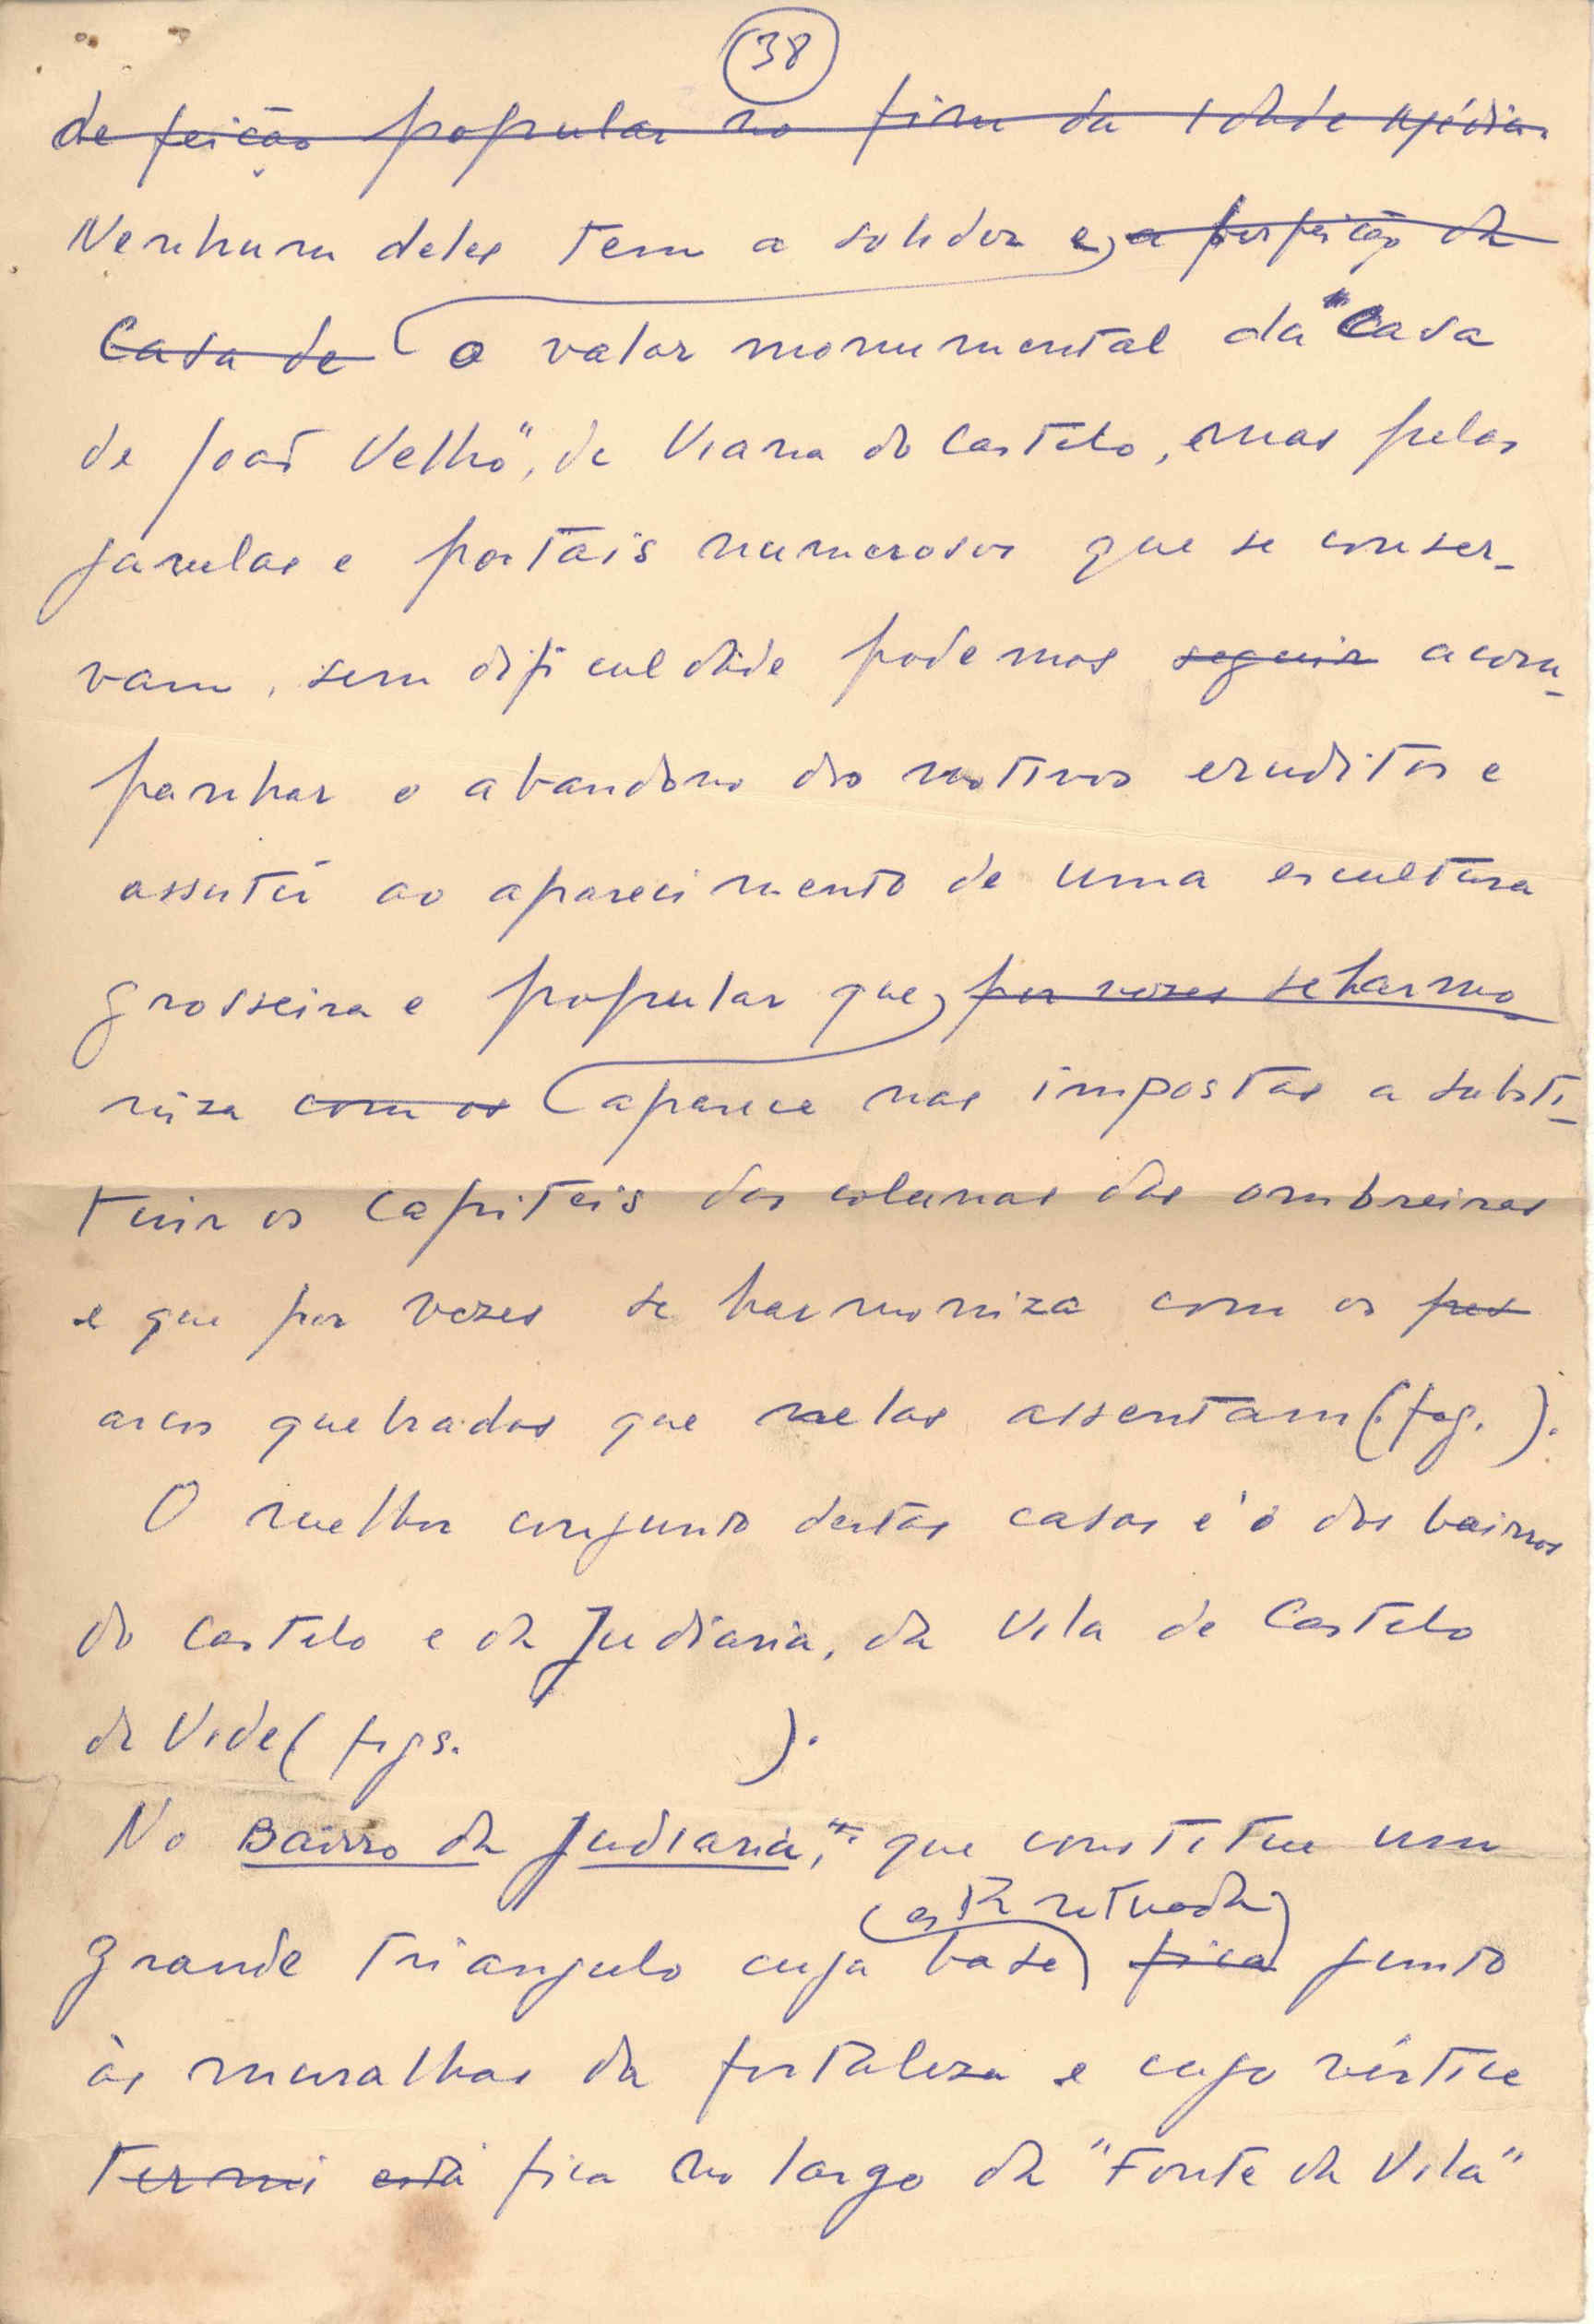 38
de feição popular no fim da Idade Média.
Nenhum deles tem a solidez e a perfeição da
Casa de o valor monumental da "Casa
de João Velho", de Viana do Castelo, mas pelas
janelas e portais numerosos que se conser-
vam, sem dificuldade podemos seguir acom-
panhar o abandono dos motivos eruditos e
assistir ao aparecimento de uma escultura
grosseira e popular que por vezes se harmo
niza com os aparece nas impostas a substi-
tuir os capiteis das colunas das ombreiras
e que por vezes se harmoniza com os
arcos quebrados que nelas assentam (fig. ).
O melhor conjunto destas casas é o dos bairros
do Castelo e da Judiaria, da Vila de Castelo
de Vide ( figs. ).
No Bairro da Judiaria, que constitue um
está situada
grande triangulo cuja base fica junto
às muralhas da fortaleza e cujo vértice
termi está fica no largo da "Fonte da Vila"